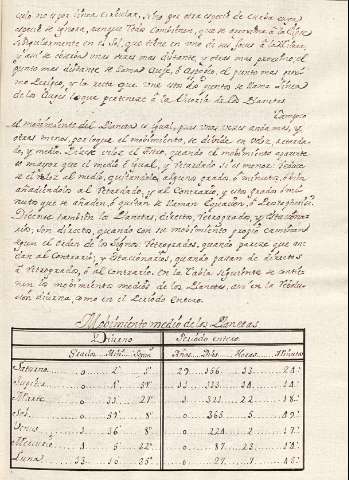 culo no por linea circular, sino por otra especie de Curva cuya
especie se ignora, aunque todos Combienen, que se aproxima à la
Regularmente en el Sol, que tiene en uno de sus focos à
y assi se observa unas veces mas distante, y otras mas proximo; el
punto mas distante se llama Auje, ò apogeo, el punto mas proxi
mo Perigeo, y la recta que une estos dos puntos se llama linea
de los Aujes: lo que pertenece à la theoría de los Planetas
Tampoco
el mobimiento del Planeta es igual, pues unas veces anda mas, y
otras menos, por lo que el mobimiento, se divide en veloz, retarda-
do, y medio. Dizese veloz el Astro, quando el mobimiento aparente
es mayor que el medio ò igual, y Retardado si es menor. Reduce-
se el Veloz al medio, quitandole, algunos grados, ò minutos, ò bien
añadiendolo al Retardado, y al Contrario, y estos grados ò mi
nutos que se añaden, ò quitan se llaman Equacion, ò
Dicense tambien los Planetas, directos, Retrogrados, y estaciona-
rios: Son directos, quando con su mobimiento propio caminan
segun el orden de los signos: Retrogrados, quando parece que an
dan al Contrario; y estacionarios, quando pasan de directos
à Retrogrados, ò al contrario. En la tabla siguiente se contie
nen los mobimientos medios de los Planetas, assi en la Rebolu
cion diurna, como en el Periodo entero.
Mobimiento medio de los Planetas
Diurno Periodo entero
Grados Minº. Segun. Años. Dias. Horas. Minutos
Saturno 0 2' 29
Jupiter 0
Marte 0 31 1 321 22 18
Sol 0 59' 8" 0 365 5 49
Venus 1 36' 8" 0 224 17
Mercurio 4 5 32" 0 87 23
Luna 13 10 35" 0 27 7